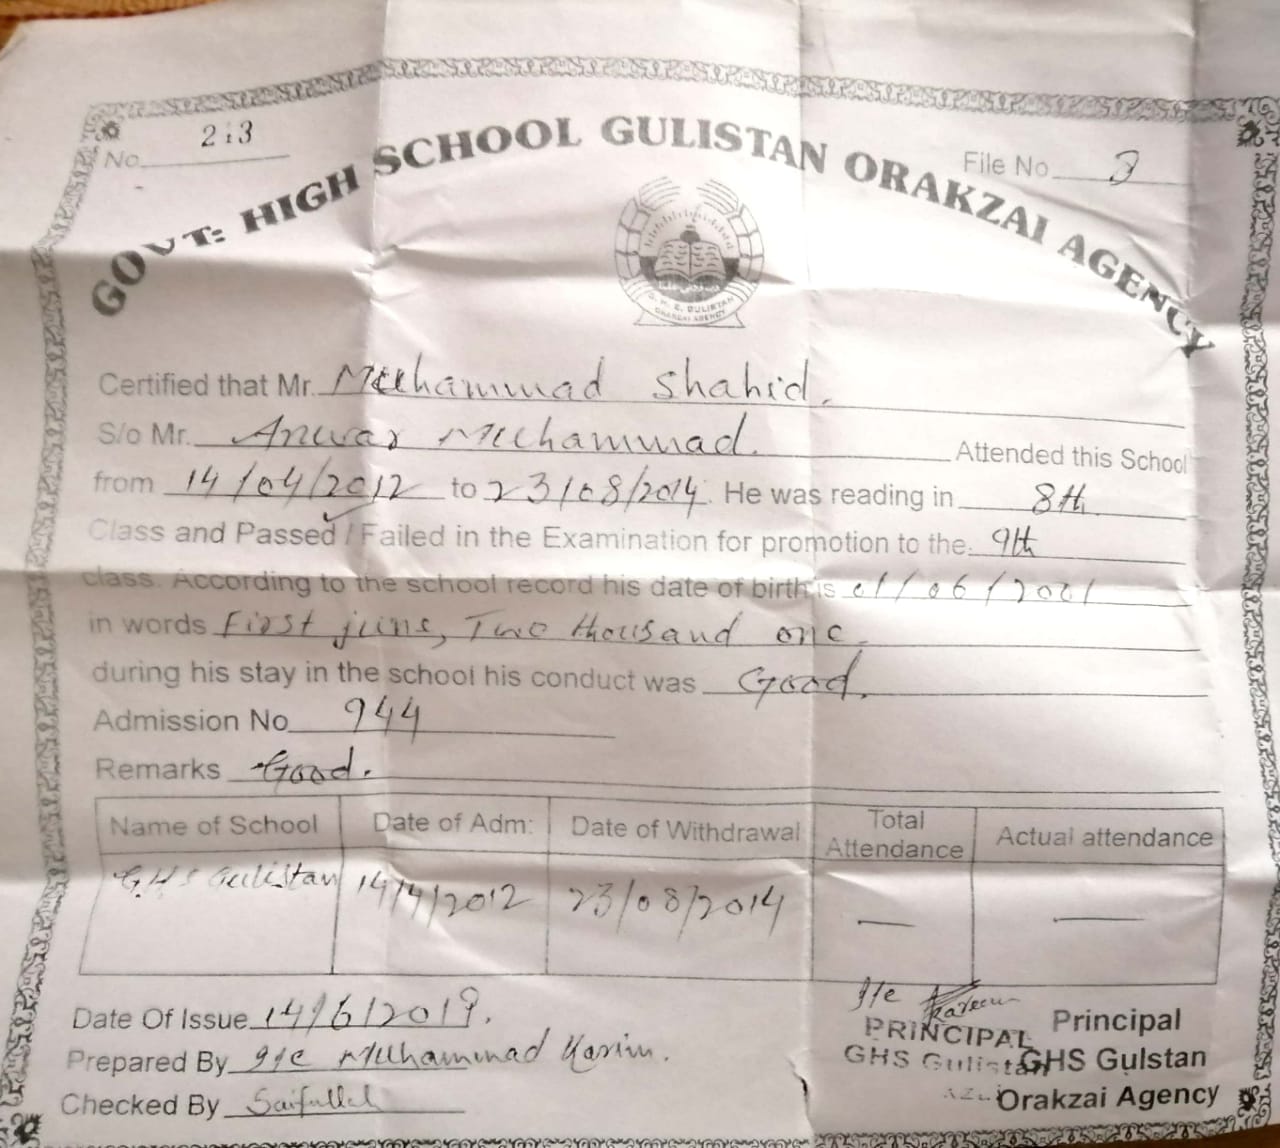 No. 213
File No. 3
GOVT: HIGH SCHOOL GULISTAN ORAKZAI AGENCY
G. H. S. GULISTAN
ORAKZAI AGENCY
Certified that Mr. Muhammad Shahid.
S/o Mr. Anwar Muhammad. Attended this School
from 14/04/2012 to 23/08/2014. He was reading in 8th
Class and Passed / Failed in the Examination for promotion to the. 9th
class. According to the school record his date of birth is 01/06/2001
in words First june, Two thousand one.
during his stay in the school his conduct was Good.
Admission No 944
Remarks Good.
Name of School Date of Adm: Date of Withdrawal Total Attendance Actual attendance
GHS Gulistan 14/4/2012 23/08/2014 — —
Date Of Issue 14/6/2019.
Prepared By I/C Muhammad Karim.
Checked By Saifullah
I/C Kareem
PRINCIPAL
GHS Gulistan
Principal
GHS Gulstan
Orakzai Agency